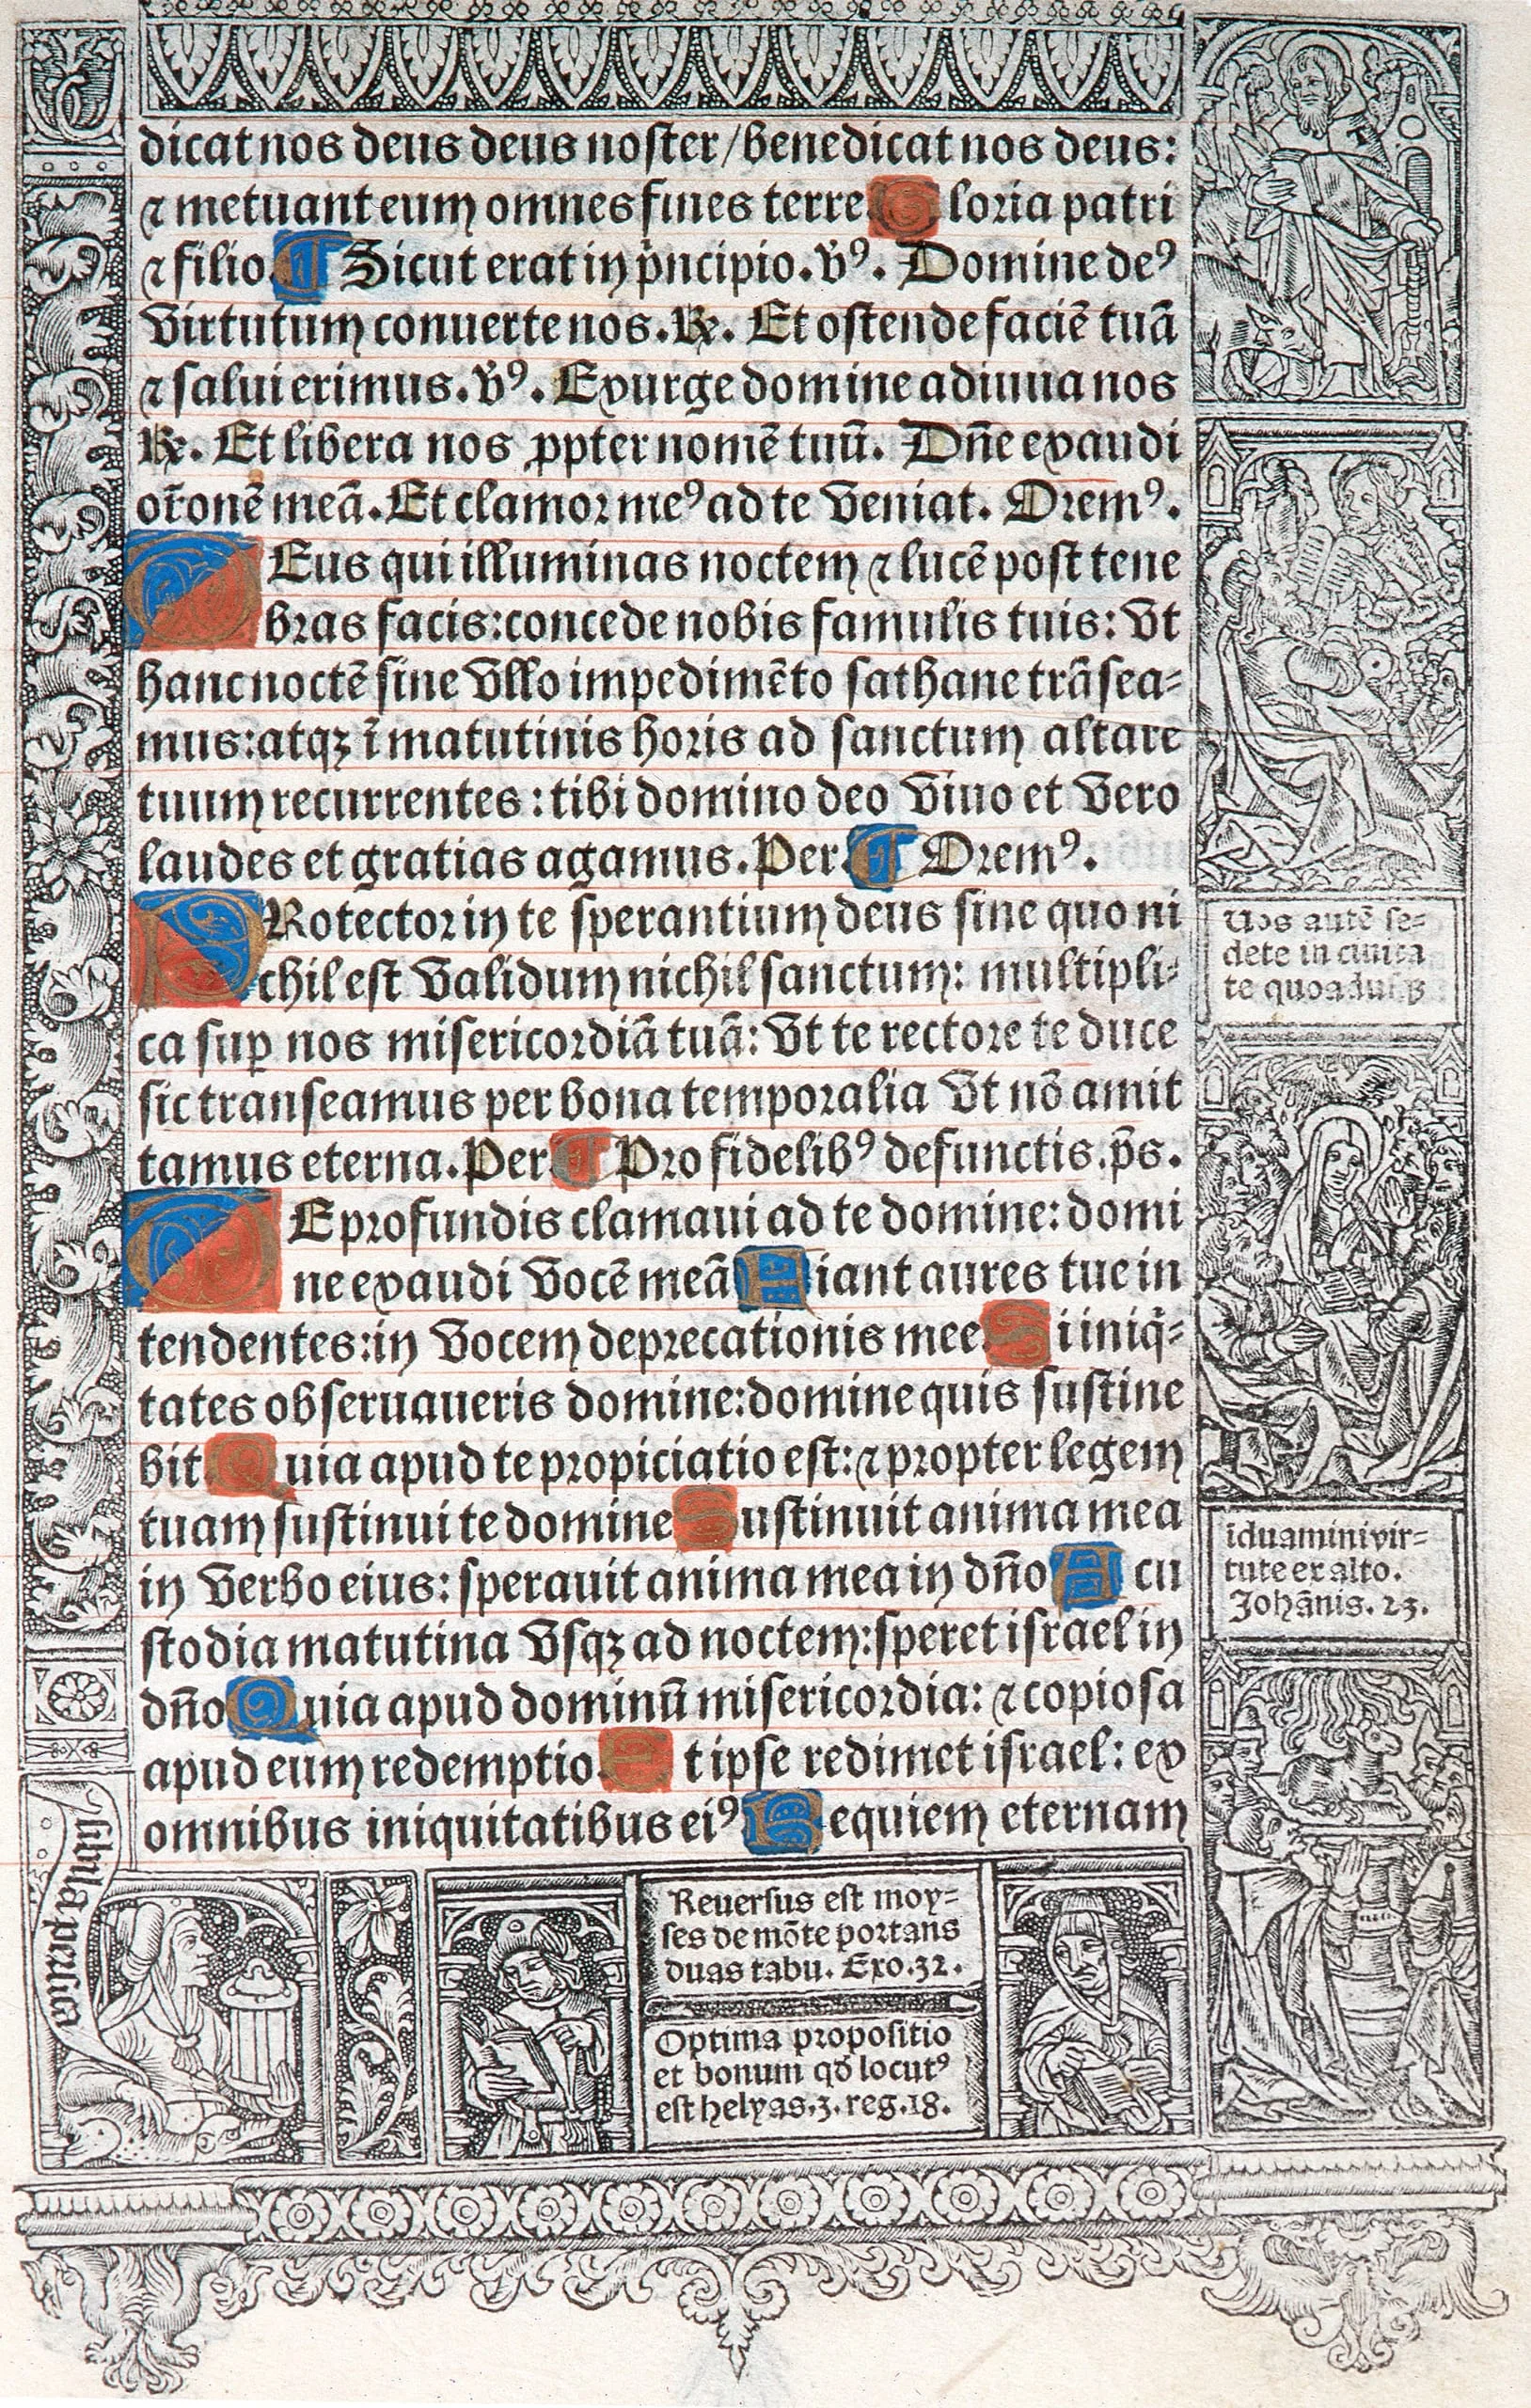 dicat nos deus deus noster/benedicat nos deus:
⁊ metuant eum omnes fines terre. Gloria patri
⁊ filio. ¶ Sicut erat in p̄ncipio. v̄ꝰ. Domine deꝰ
virtutum conuerte nos. ℟. Et ostende faciē tuā
⁊ salui erimus. v̄ꝰ. Exurge domine adiuua nos
℟. Et libera nos ꝓpter nomē tuū. Dn̄e exaudi
or̄onē meā. Et clamor meꝰ ad te veniat. Oremꝰ.
DEus qui illuminas noctem ⁊ lucē post tene
bras facis: concede nobis famulis tuis: vt
hanc noctē sine vllo impedimēto sathane trāsea-
mus: atqꝫ ī matutinis horis ad sanctum altare
tuum recurrentes: tibi domino deo viuo et vero
laudes et gratias agamus. Per ¶ Oremꝰ.
PRotector in te sperantium deus sine quo ni
chil est validum nichil sanctum: multipli-
ca suꝑ nos misericordiā tuā: vt te rectore te duce
sic transeamus per bona temporalia vt nō amit
tamus eterna. Per ¶ Pro fidelibꝰ defunctis. p̄s.
DE profundis clamaui ad te domine: domi
ne exaudi vocē meā Fiant aures tue in
tendentes: in vocem deprecationis mee Si iniq̄-
tates obseruaueris domine: domine quis sustine
bit Quia apud te propiciatio est: ⁊ propter legem
tuam sustinui te domine Sustinuit anima mea
in verbo eius: sperauit anima mea in dn̄o A cu
stodia matutina vsqꝫ ad noctem: speret israel in
dn̄o Quia apud dominū misericordia: ⁊ copiosa
apud eum redemptio. Et ipse redimet israel: ex
omnibus iniquitatibus eiꝰ Requiem eternam
Uos autē se-
dete in ciuita
te quoadusꝫ
īduamini vir-
tute ex alto.
Johānis. 23.
sibilla persica
Reuersus est moy-
ses de mōte portans
duas tabu. Exo. 32.
Optima propositio
et bonum qd̄ locutꝰ
est helyas. 3. reg. 18.